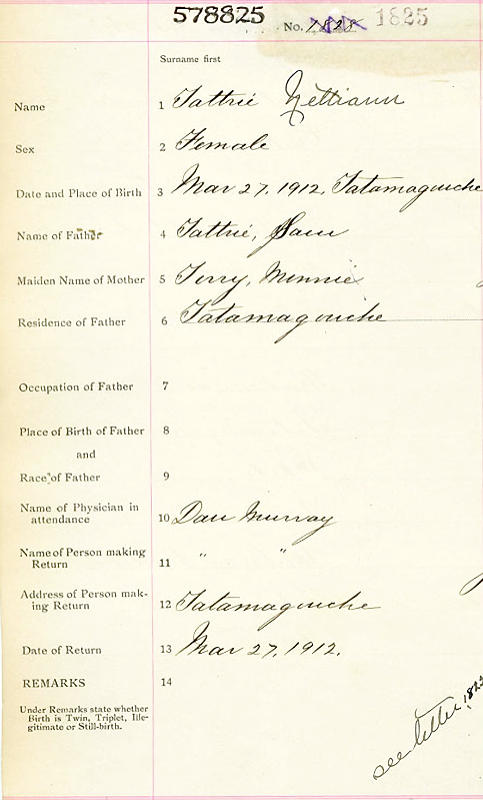 578825
No. 1825
Surname first
Name 1 Tattrie Nettiann
Sex 2 Female
Date and Place of Birth 3 Mar 27, 1912, Tatamagouche
Name of Father 4 Tattrie, Sam
Maiden Name of Mother 5 Terry, Minnie
Residence of Father 6 Tatamagouche
Occupation of Father 7
Place of Birth of Father 8
and
Race of Father 9
Name of Physician in
attendance 10 Dan Murray
Name of Person making
Return 11 " "
Address of Person mak-
ing Return 12 Tatamagouche
Date of Return 13 Mar 27, 1912.
REMARKS 14
Under Remarks state whether
Birth is Twin, Triplet, Ille-
gitimate or Still-birth.
see letter